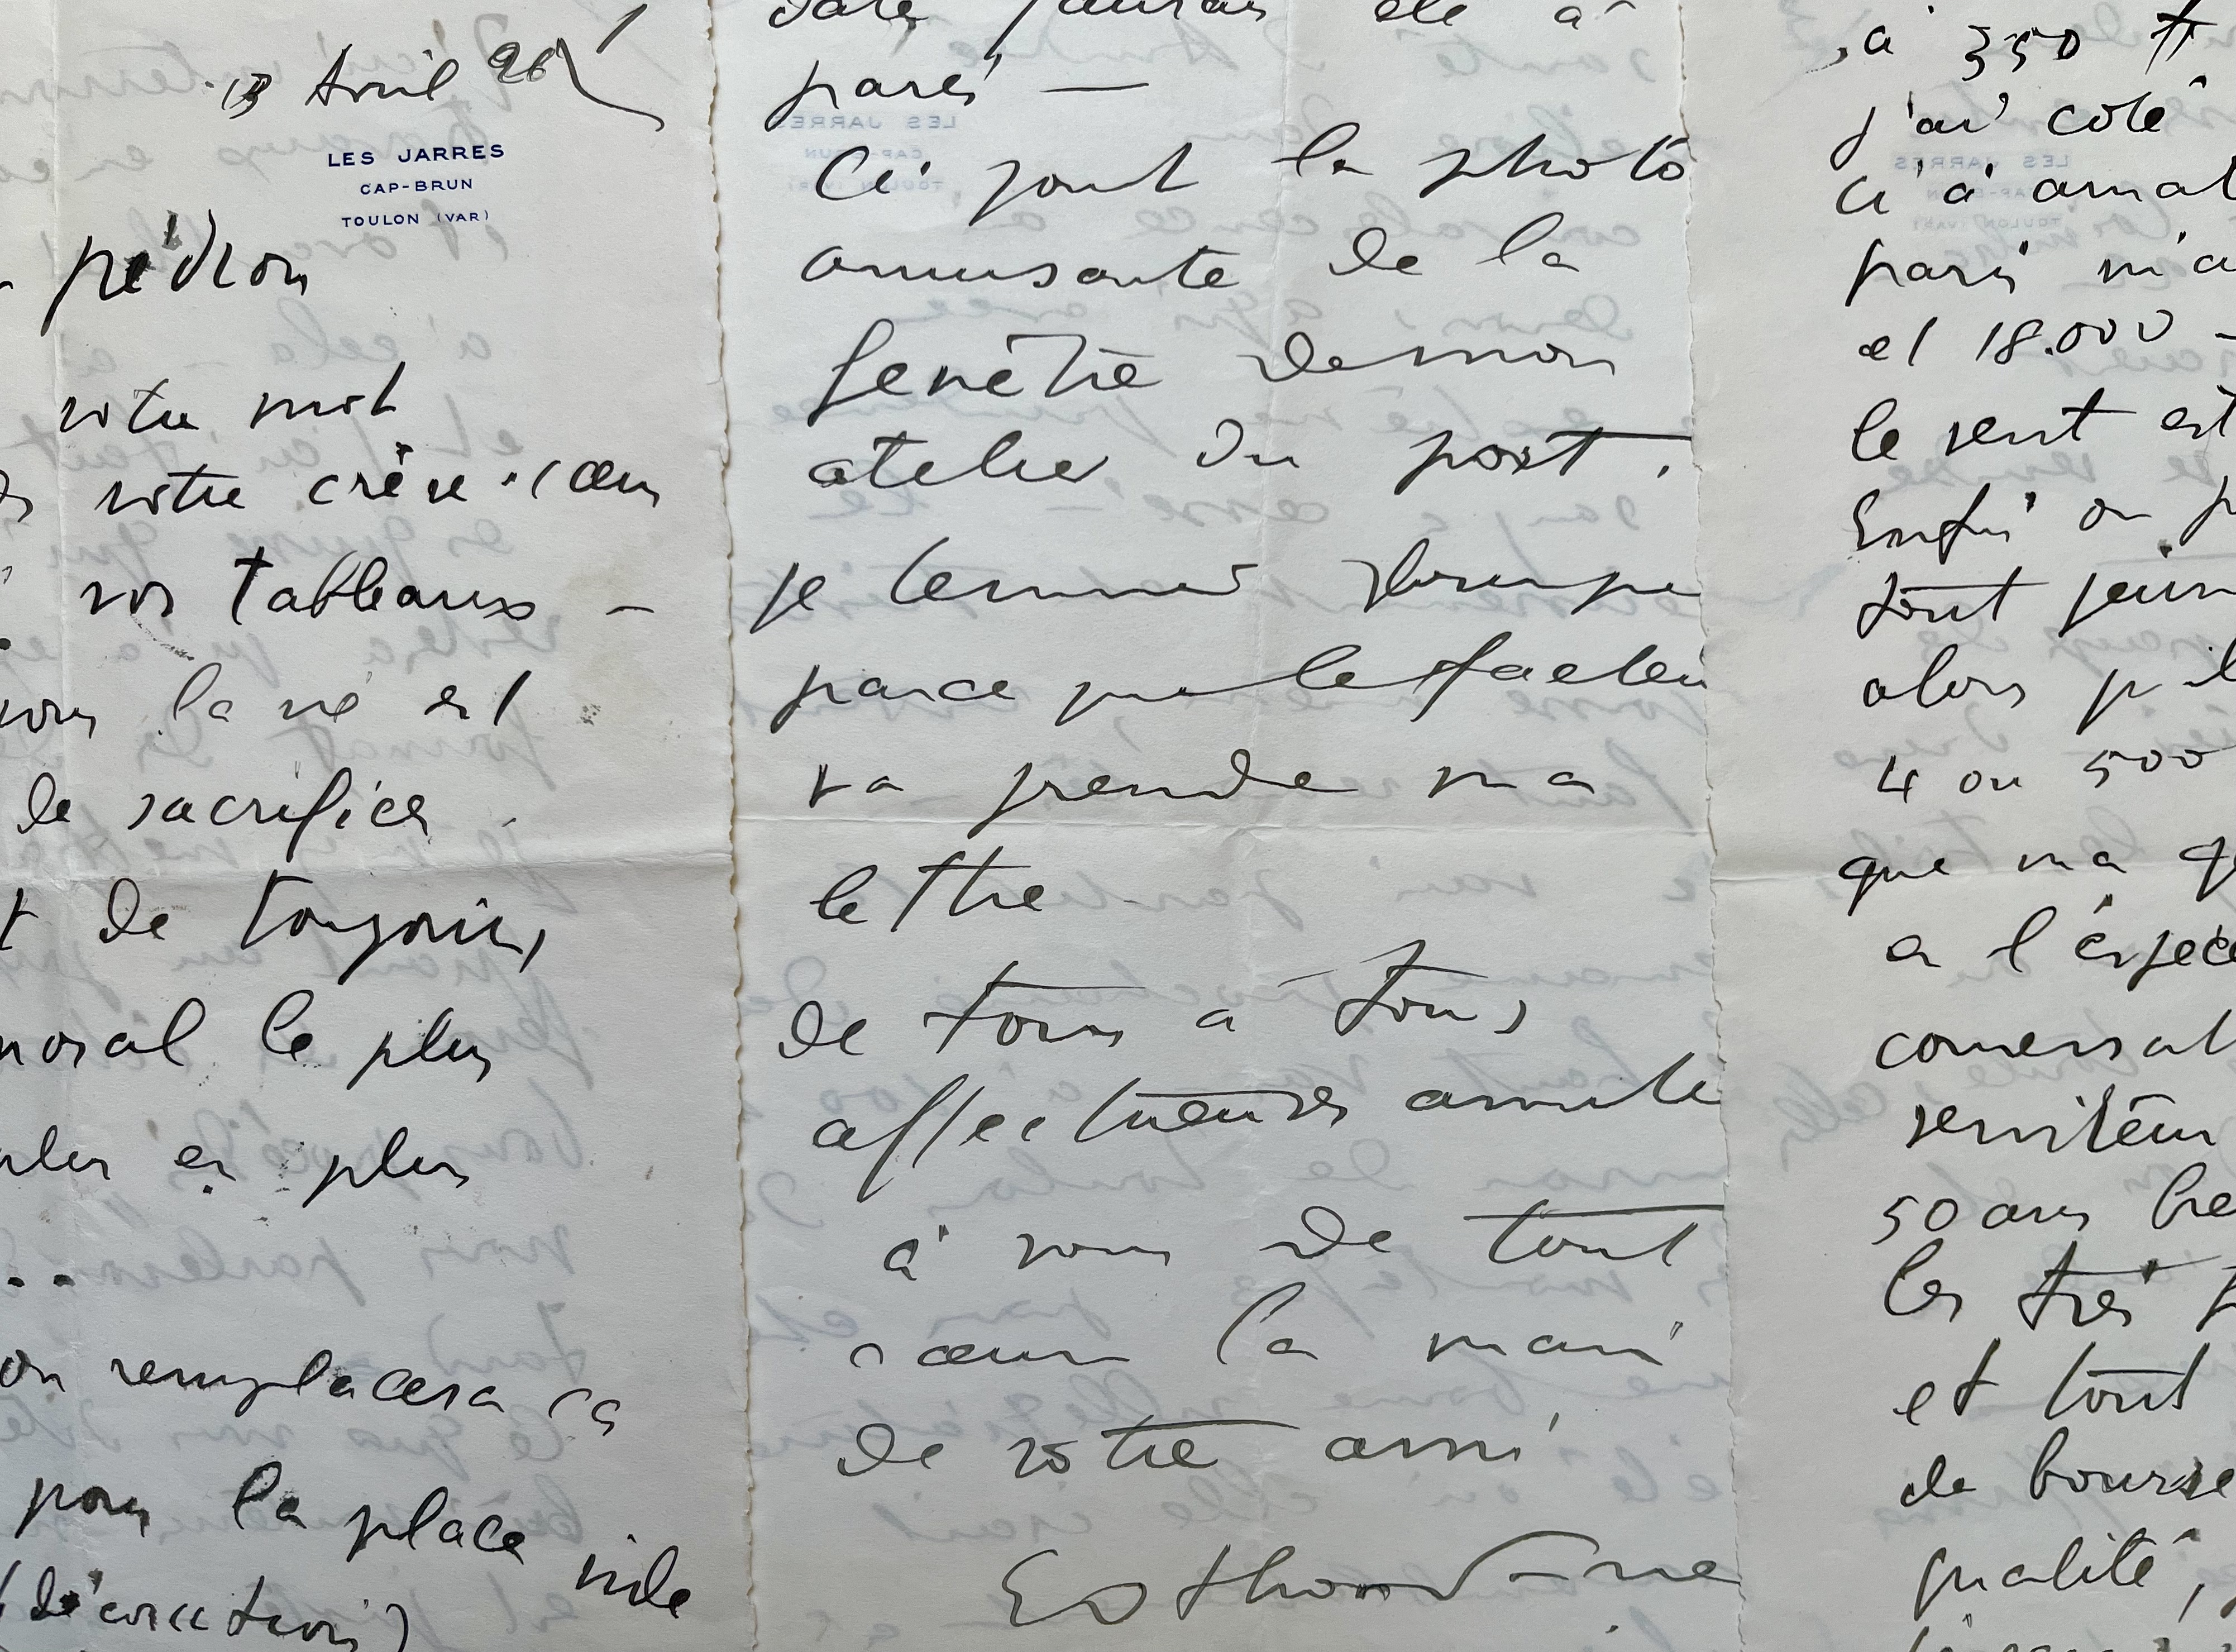 13 Avril 26
LES JARRES
CAP-BRUN
TOULON (VAR)
pédron
votre mot
votre crève-cœur
vos tableaux —
vous la vie est
de sacrifices
t de toujours,
moral le plus
plus en plus
..
on remplacera ça
pour la place vide
(décoration)
date j'aurais été à
paris —
Ci joint la photo
amusante de la
fenêtre de mon
atelier du port.
je termine
parce que le facteur
va prendre ma
lettre
de tous a tous
affectueuses amitié
à vous de tout
cœur la main
de votre ami
à 350 tt
j'ai coté
ci à amat
paris m'a
et 18.000 –
le vent est
Enfin on p
tout jeun
alors
4 ou 500
que ma
a l'espèce
conversat
serviteur
50 ans
les très
et tout
de bourse
qualité,